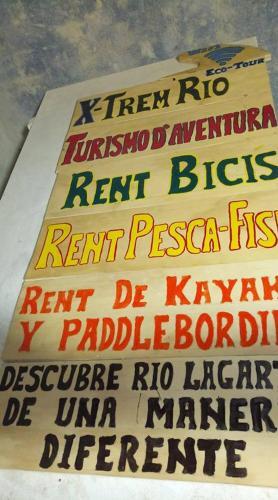 ECO-TOUR
X-TREM RIO
TURISMO D'AVENTURA
RENT BICIS
RENT PESCA-FIS
RENT DE KAYAK
Y PADDLEBORDI
DESCUBRE RIO LAGART
DE UNA MANER
DIFERENTE